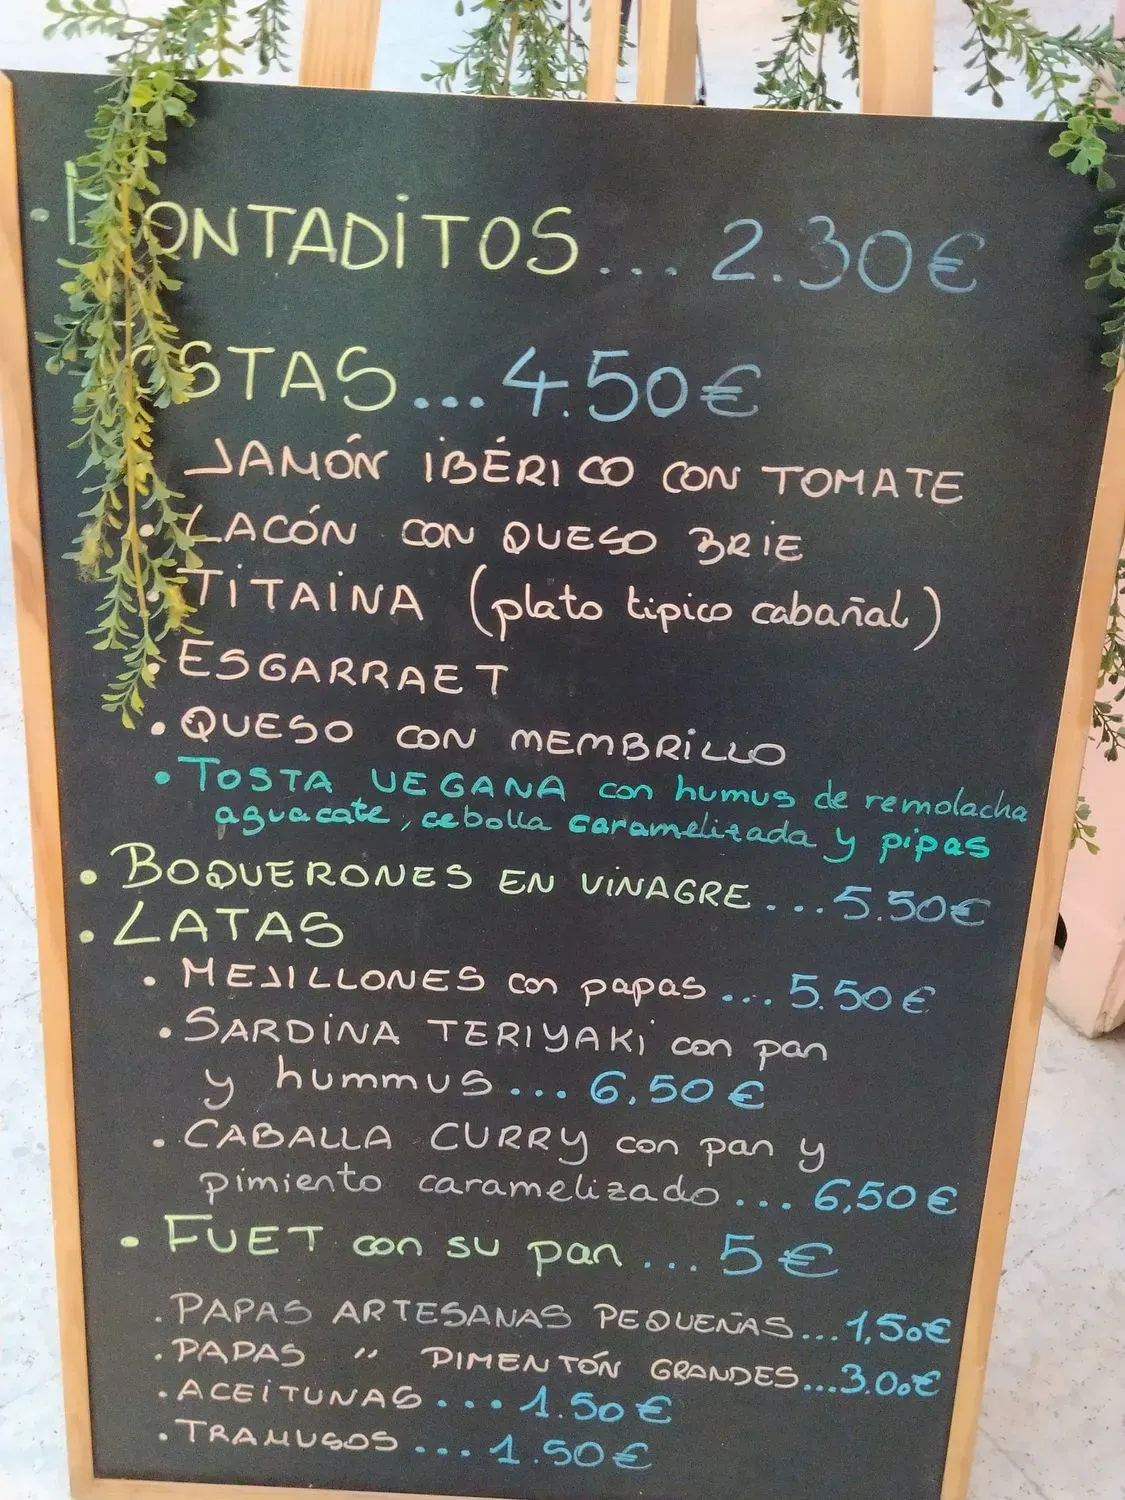 · MONTADITOS ... 2.30€
OSTAS ... 4.50€
JAMÓN IBÉRICO CON TOMATE
· LACÓN CON QUESO BRIE
· TITAINA (plato tipico cabañal)
· ESGARRAET
· QUESO CON MEMBRILLO
· TOSTA VEGANA con humus de remolacha
aguacate, cebolla caramelizada y pipas
· BOQUERONES EN VINAGRE ... 5.50€
· LATAS
· MEJILLONES con papas ... 5.50€
· SARDINA TERIYAKI con pan
y hummus ... 6,50€
· CABALLA CURRY con pan y
pimiento caramelizado ... 6,50€
· FUET con su pan ... 5€
· PAPAS ARTESANAS PEQUEÑAS ... 1,50€
· PAPAS " PIMENTÓN GRANDES ... 3.00€
· ACEITUNAS ... 1.50€
· TRAMUSOS ... 1.50€